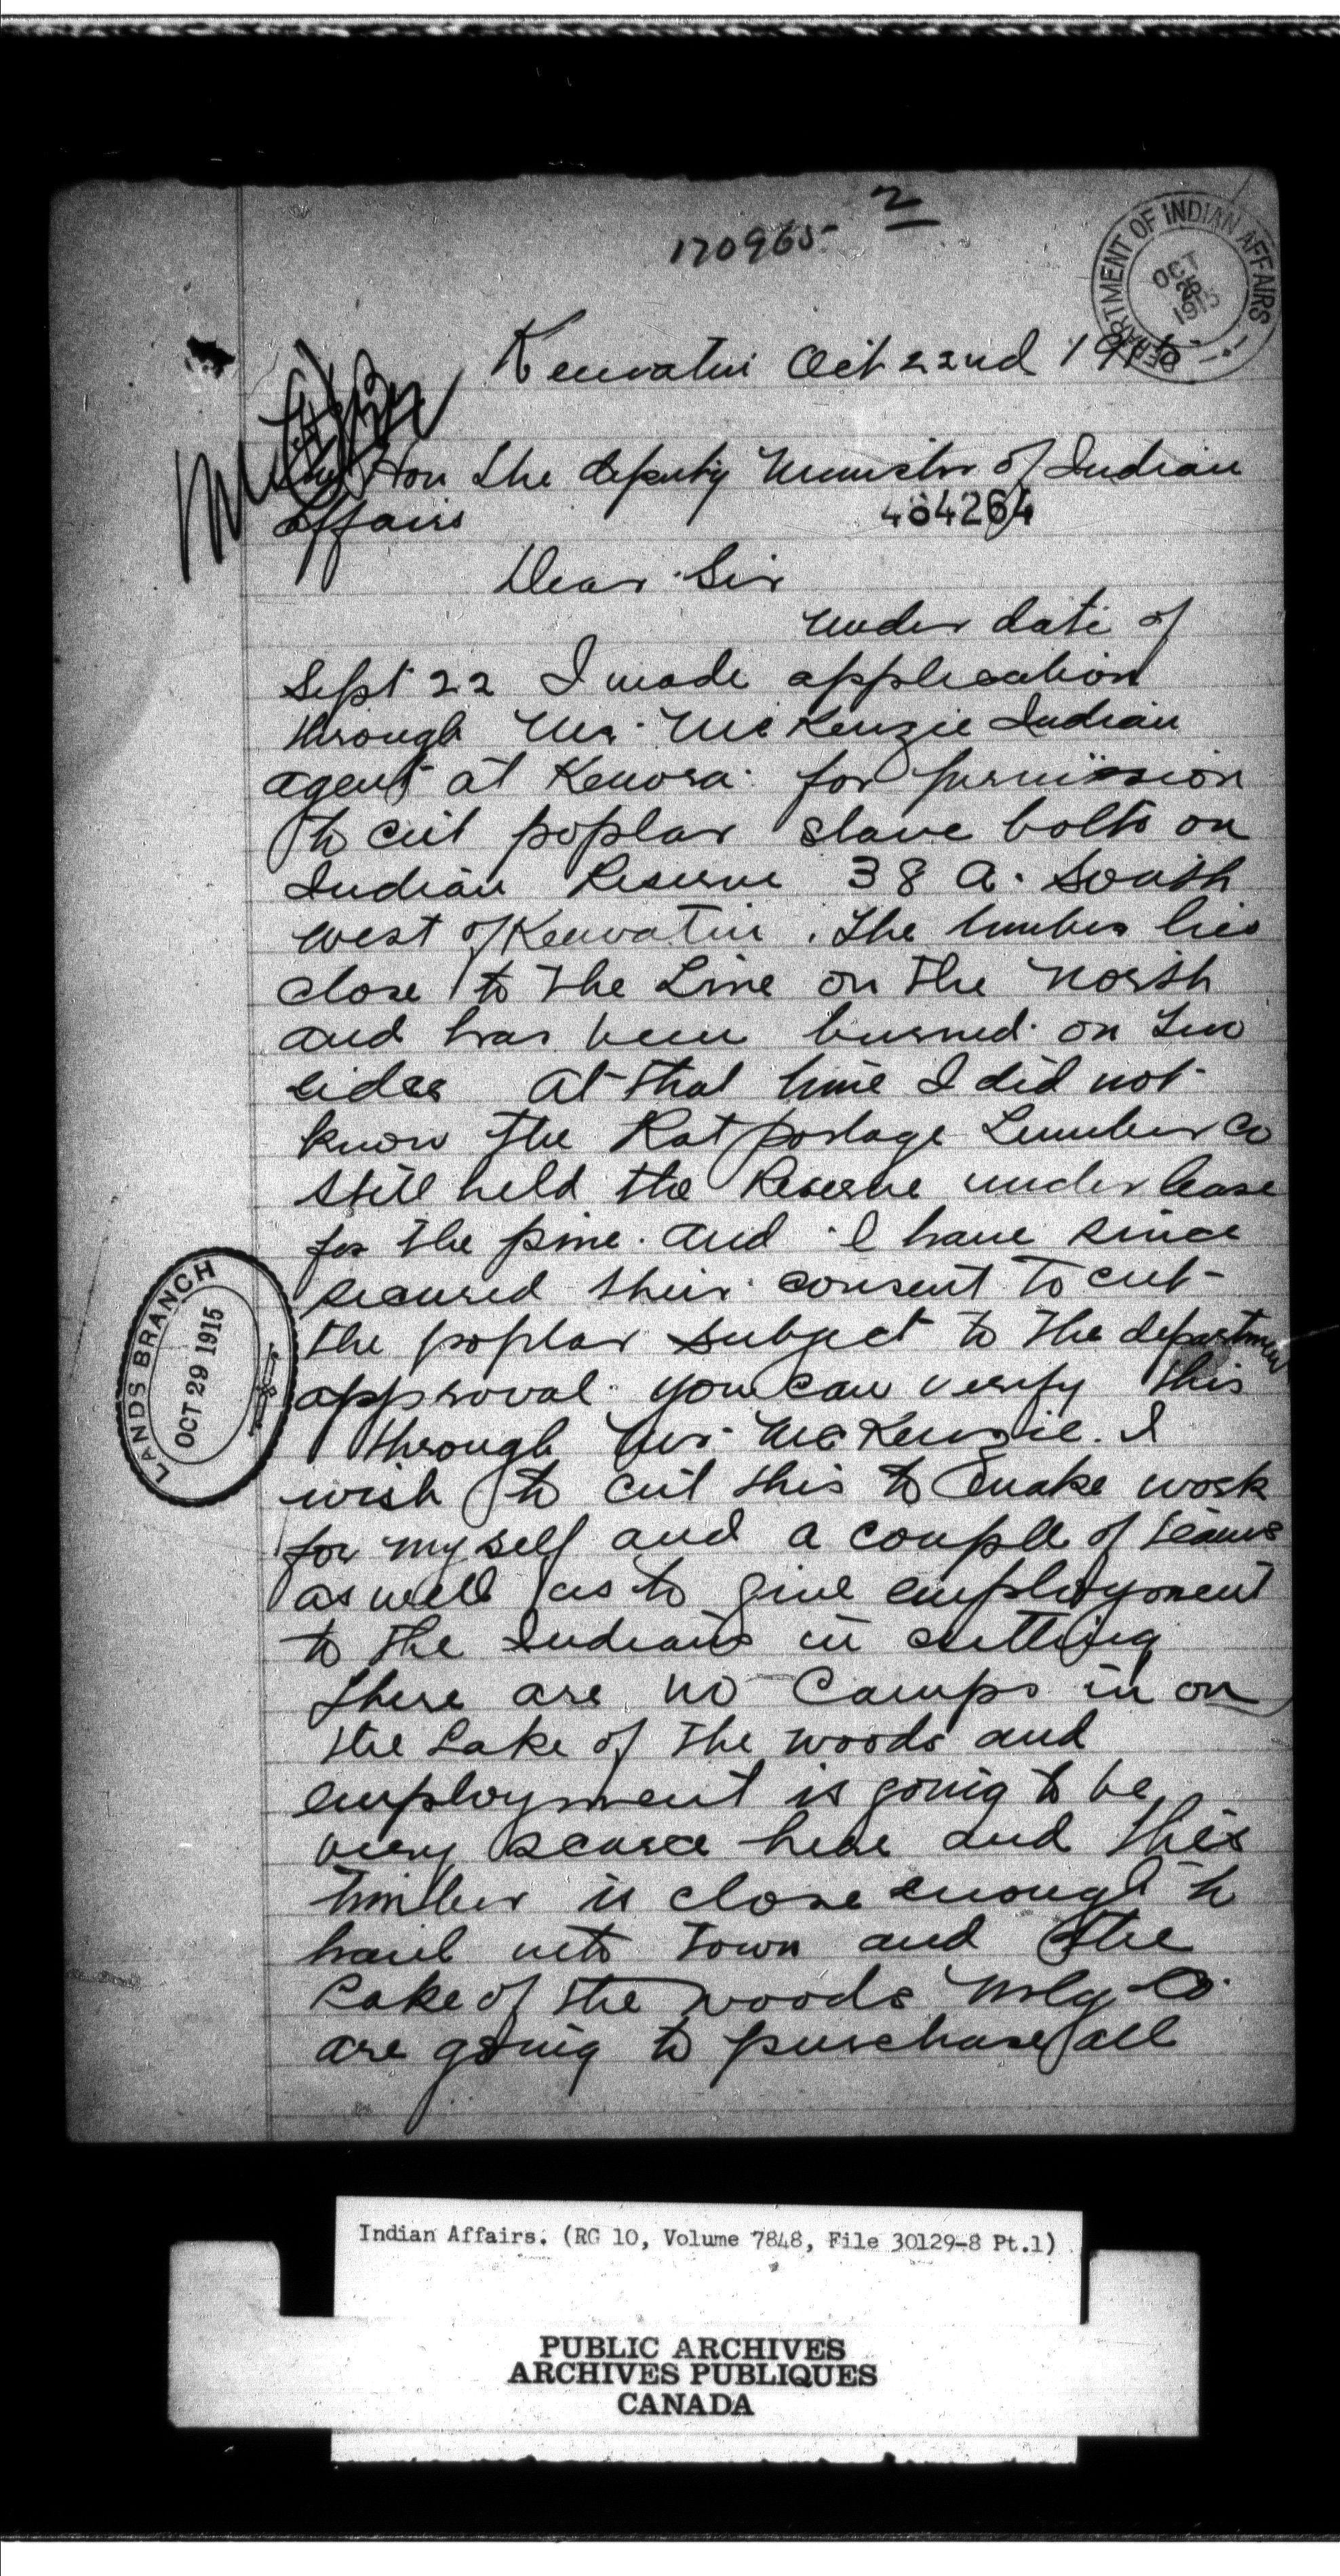 2
170965
DEPARTMENT OF INDIAN AFFAIRS
OCT
1915
Keewatin Oct 22nd 1915
The Hon the deputy Minister of Indian
affairs
484264
Dear Sir
under date of
Sept 22 I made application
through Mr. McKenzie Indian
agent at Kenora for permission
to cut poplar stave bolts on
Indian Reserve 38 A. South
west of Keewatin. The timber lies
close to the Line on the north
and has been burned on two
sides At that time I did not
know the Rat portage Lumber Co
still held the Reserve under lease
for the pine. and I have since
secured their consent to cut
the poplar subject to the department
approval. you can verify this
through Mr. McKenzie. I
wish to cut this to make work
for myself and a couple of teams
as well as to give employment
to the Indians in cutting
there are no Camps in on
the Lake of the woods and
employment is going to be
very scarce here and this
timber is close enough to
haul into Town and the
Lake of the woods Mlg Co.
are going to purchase all
LANDS BRANCH
OCT 29 1915
Indian Affairs. (RG 10, Volume 7848, File 30129-8 Pt.1)
PUBLIC ARCHIVES
ARCHIVES PUBLIQUES
CANADA